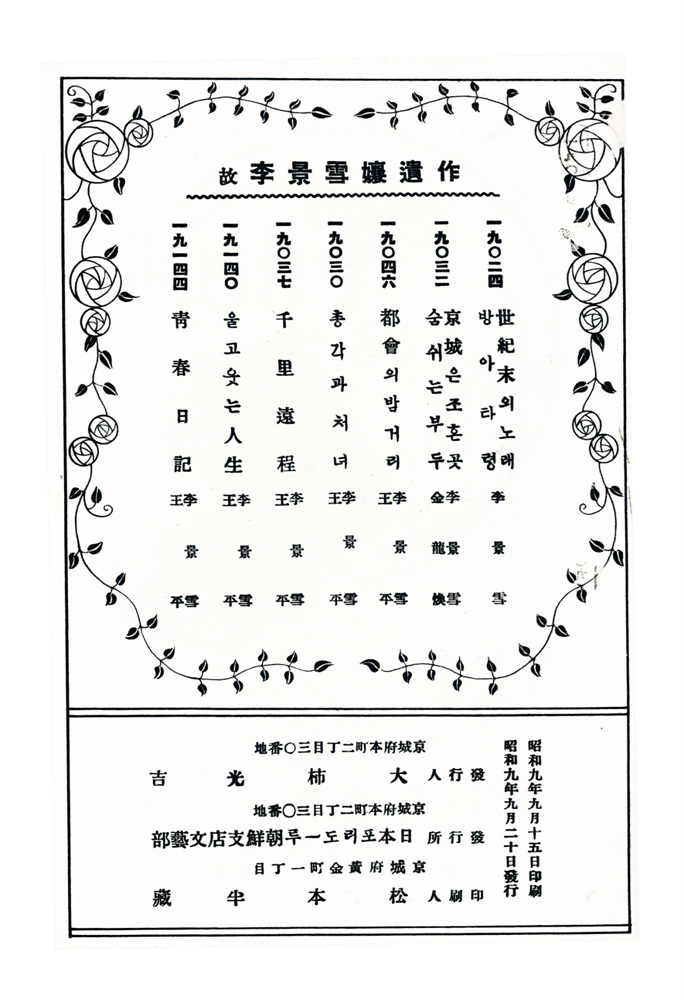 故 李景雪孃遺作
一九〇二四
世紀末의노래
방아타령
李景雪
一九〇三二
京城은조흔곳
숨쉬는부두
李景雪
金龍煥
一九〇四六
都會의밤거리
李景雪
王平
一九〇三〇
총각과처녀
李景雪
王平
一九〇三七
千里遠程
李景雪
王平
一九一四〇
울고웃는人生
李景雪
王平
一九一四四
靑春日記
李景雪
王平
昭和九年九月十五日印刷
昭和九年九月二十日發行
京城府本町二丁目三〇番地
發行人 大柿光吉
京城府本町二丁目三〇番地
發行所 日本포리도ー루朝鮮支店文藝部
京城府黃金町一丁目
印刷人 松本半藏